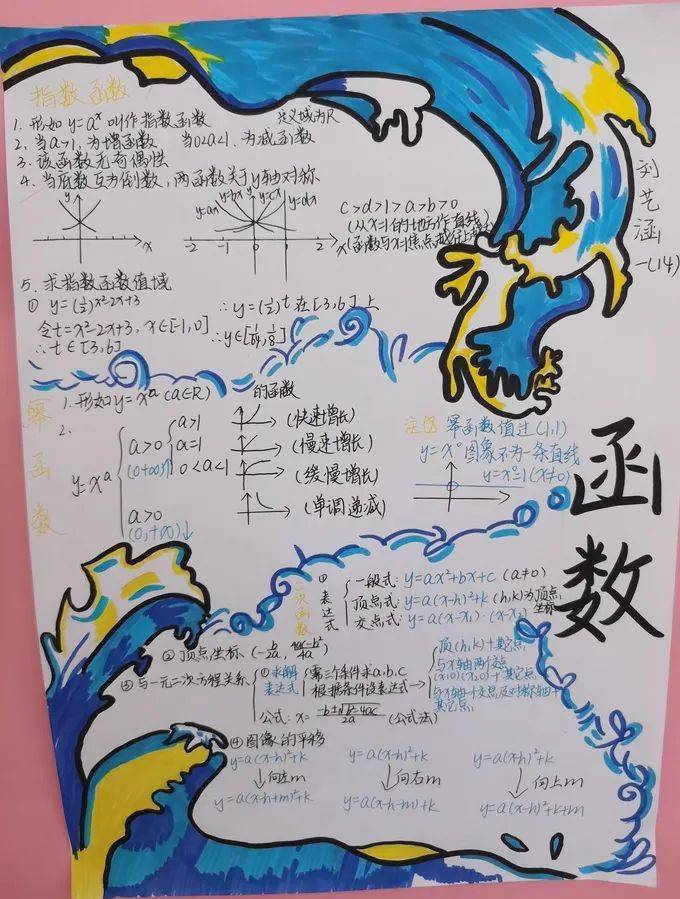 指数函数
1. 形如 y=aˣ 叫作指数函数 定义域为R
2. 当a>1, 为增函数 当0<a<1, 为减函数
3. 该函数无奇偶性
4. 当底数互为倒数, 两函数关于y轴对称
y
x
y=ax y=bx y=cx y=dx
-2 -1 0 1 2 x
c>d>1>a>b>0
(从x=1的地方作直线)
5. 求指数函数值域
① y=(½)x²-2x+3
令t=x²-2x+3, x∈[-1,0]
∴t∈[3,6]
∴y=(½)ᵗ在[3,6]上
∴y∈[1/64,1/8]
幂函数
1. 形如y=xᵃ (a∈R) 的函数
2.
y=xᵃ
a>0
(0,+∞)↑
a>1
(快速增长)
a=1
(慢速增长)
0<a<1
(缓慢增长)
a>0
(0,+∞)↓
(单调递减)
注意 幂函数值过(1,1)
y=x⁰图象不为一条直线
y=x⁰=1(x≠0)
函数
刘艺涵
一(14)
二次函数
① 表达式
一般式: y=ax²+bx+c (a≠0)
顶点式: y=a(x-h)²+k (h,k)为顶点坐标
交点式: y=a(x-x₁)·(x-x₂)
② 顶点坐标 (-b/2a, 4ac-b²/4a)
③ 与一元二次方程关系
① 求解表达式
需三个条件求a,b,c
根据条件设表达式→
顶(h,k)+其它点
与x轴两交点
(x₁,0)(x₂,0)+其它点
与x轴一交点及对称轴+
其它点
公式: x=-b±√b²-4ac/2a (公式法)
④ 图像的平移
y=a(x-h)²+k y=a(x-h)²+k y=a(x-h)²+k
↓向左m ↓向右m ↓向上m
y=a(x-h+m)²+k y=a(x-h-m)+k y=a(x-h)²+k+m